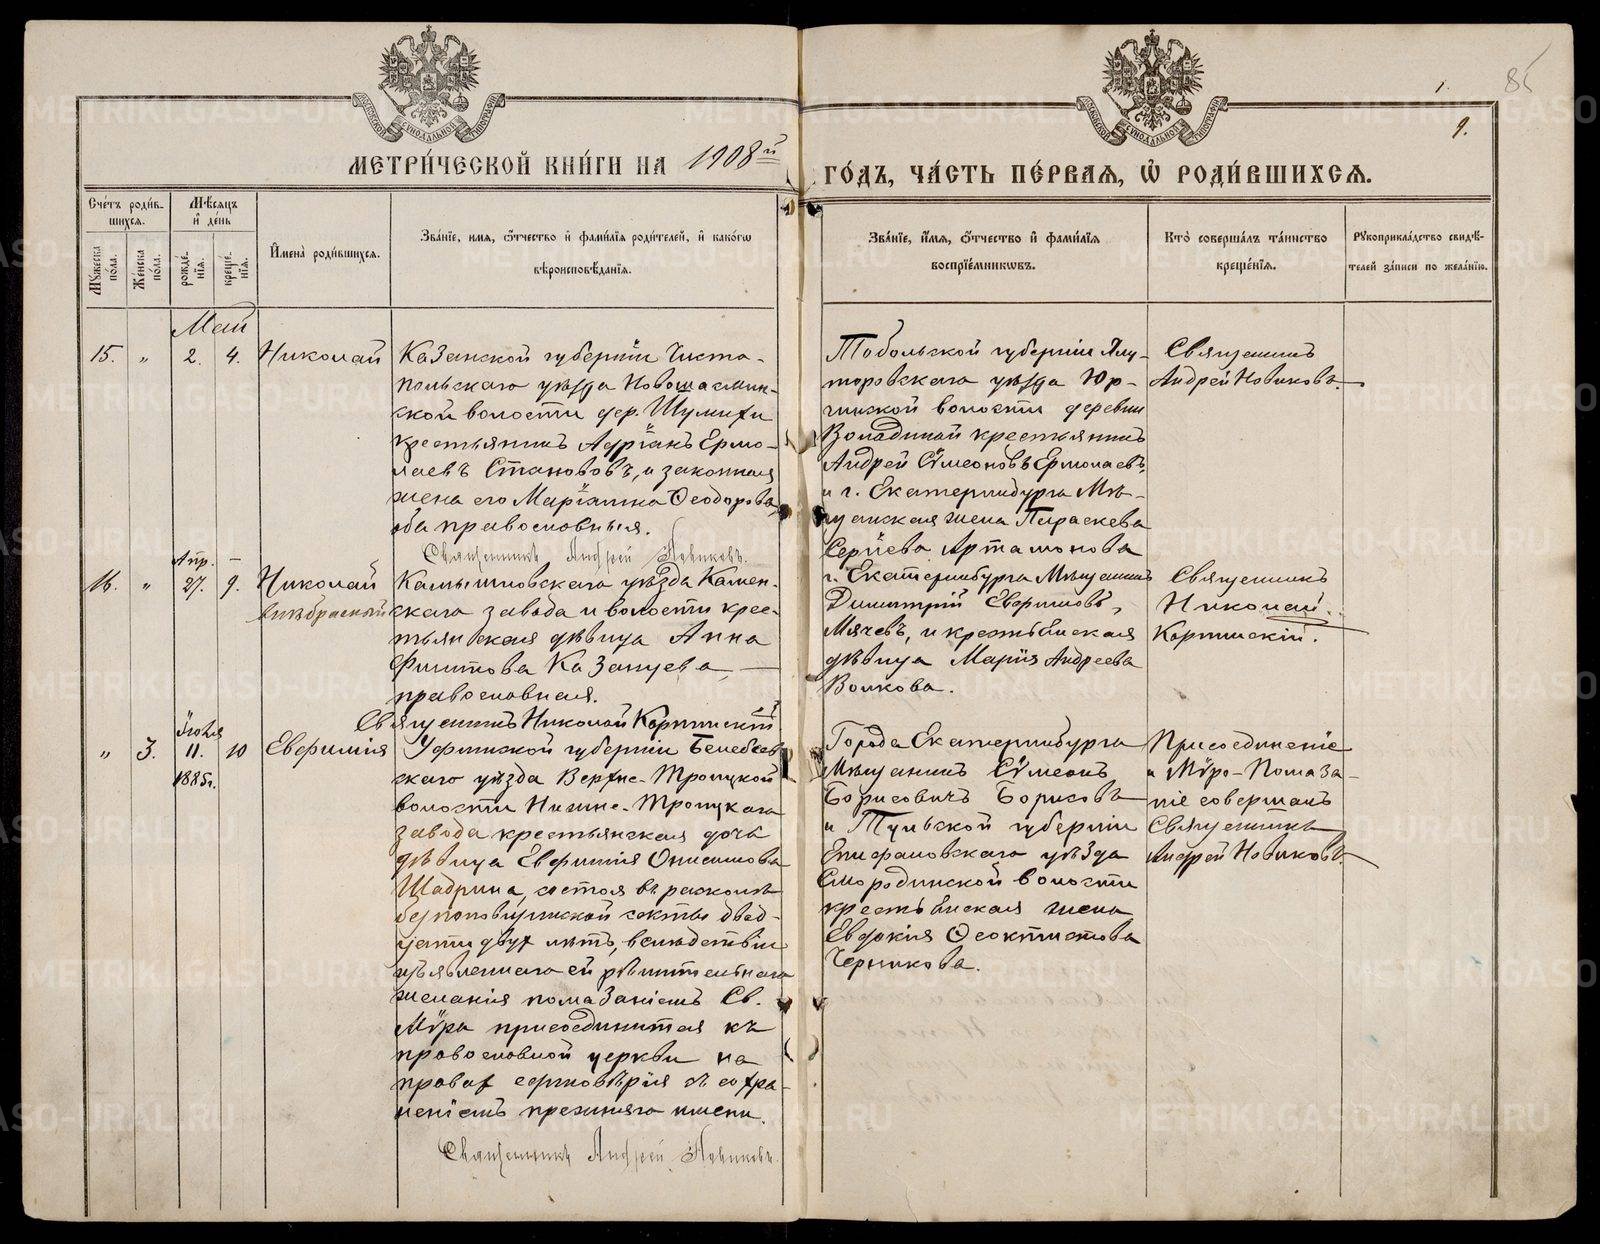 85
1.
9.
МЕТРИ́ЧЕСКОЙ КНИ́ГИ НА 1908й ГО́ДЪ, ЧА́СТЬ ПЕ́РВАѦ, Ѽ РОДИ́ВШИХСѦ.
Сче́тъ роди́в-
шихсѧ.
Мѣ́сѧцъ
и̑ де́нь
Мꙋжеска
по́ла.
Же́нска
по́ла.
рожде́-
нїѧ.
креще́-
нїѧ.
И̑мена̀ роди́вшихсѧ.
Зва́нїе, имѧ, ѻ҆́тчество и̑ фами́лїѧ роди́телей, и̑ како́гѡ
вѣроисповѣ́данїѧ.
Зва́нїе, и҆́мѧ, ѻ҆́тчество и̑ фами́лїѧ
воспрїе́мникѡвъ.
Кто̀ соверша́лъ та́инство
креще́нїѧ.
Рꙋкоприкла́дство свидѣ́-
телей за́писи по жела́нїю.
Май
15. „ 2. 4. Николай
Казанской губернiи Чисто-
польскаго уѣзда Новошешмин-
ской волости дер. Шумихи
крестьянинъ Адрiанъ Ермо-
лаевъ Станововъ, и законная
жена его Марiанна Ѳеодорова,
оба православныя.
Священникъ Андрей Новиковъ.
Тобольской губернiи Ялу-
торовскаго уѣзда Юр-
гинской волости деревни
Володиной крестьянинъ
Андрей Сѵмеоновъ Ермолаевъ,
и г. Екатеринбурга Мѣ-
щанская жена Параскева
Сергiева Артамонова
Священникъ
Андрей Новиковъ.
Апр. –
16. „ 27. 9. Николай
внѣбрачный
Камышловскаго уѣзда Камен-
скаго завода и волости крес-
тьянская дѣвица Анна
Филитова Казанцева,
православная.
Священникъ Николай Коровинскiй
г. Екатеринбурга Мѣщанинъ
Димитрiй Евфимовъ,
Мячевъ, и крестьянская
дѣвица Марiя Андреева
Волкова.
Священникъ
Николай
„ 3. 11. 10 Евфимiя
Iюля
1885г.
Уфимской губернiи Белебеев-
скаго уѣзда Верхне-Троицкой
волости Нижне-Троицкаго
завода крестьянская дочь
дѣвица Евфимiя Онисимова
Шадрина, состоя въ расколѣ
безпоповщинской секты двад-
цати двух лѣтъ, вслѣдствiи
изъявленнаго ей рѣшительнаго
желанiя помазанiемъ Св.
Мѵра присоединится къ
православной церкви на
правах единовѣрiя съ сохра-
ненiемъ прежняго имени.
Священникъ Андрей Новиковъ.
Города Екатеринбурга
Мѣщанинъ Сѵмеонъ
Борисовичъ Борисовъ
и Тульской губернiи
Епифановскаго уѣзда
Смородинской волости
крестьянская жена
Евдокiя Ѳеоктистова
Черникова.
Присоединенiе
и Мѵро-Помаза-
нiе совершалъ
Священникъ
Андрей Новиковъ.